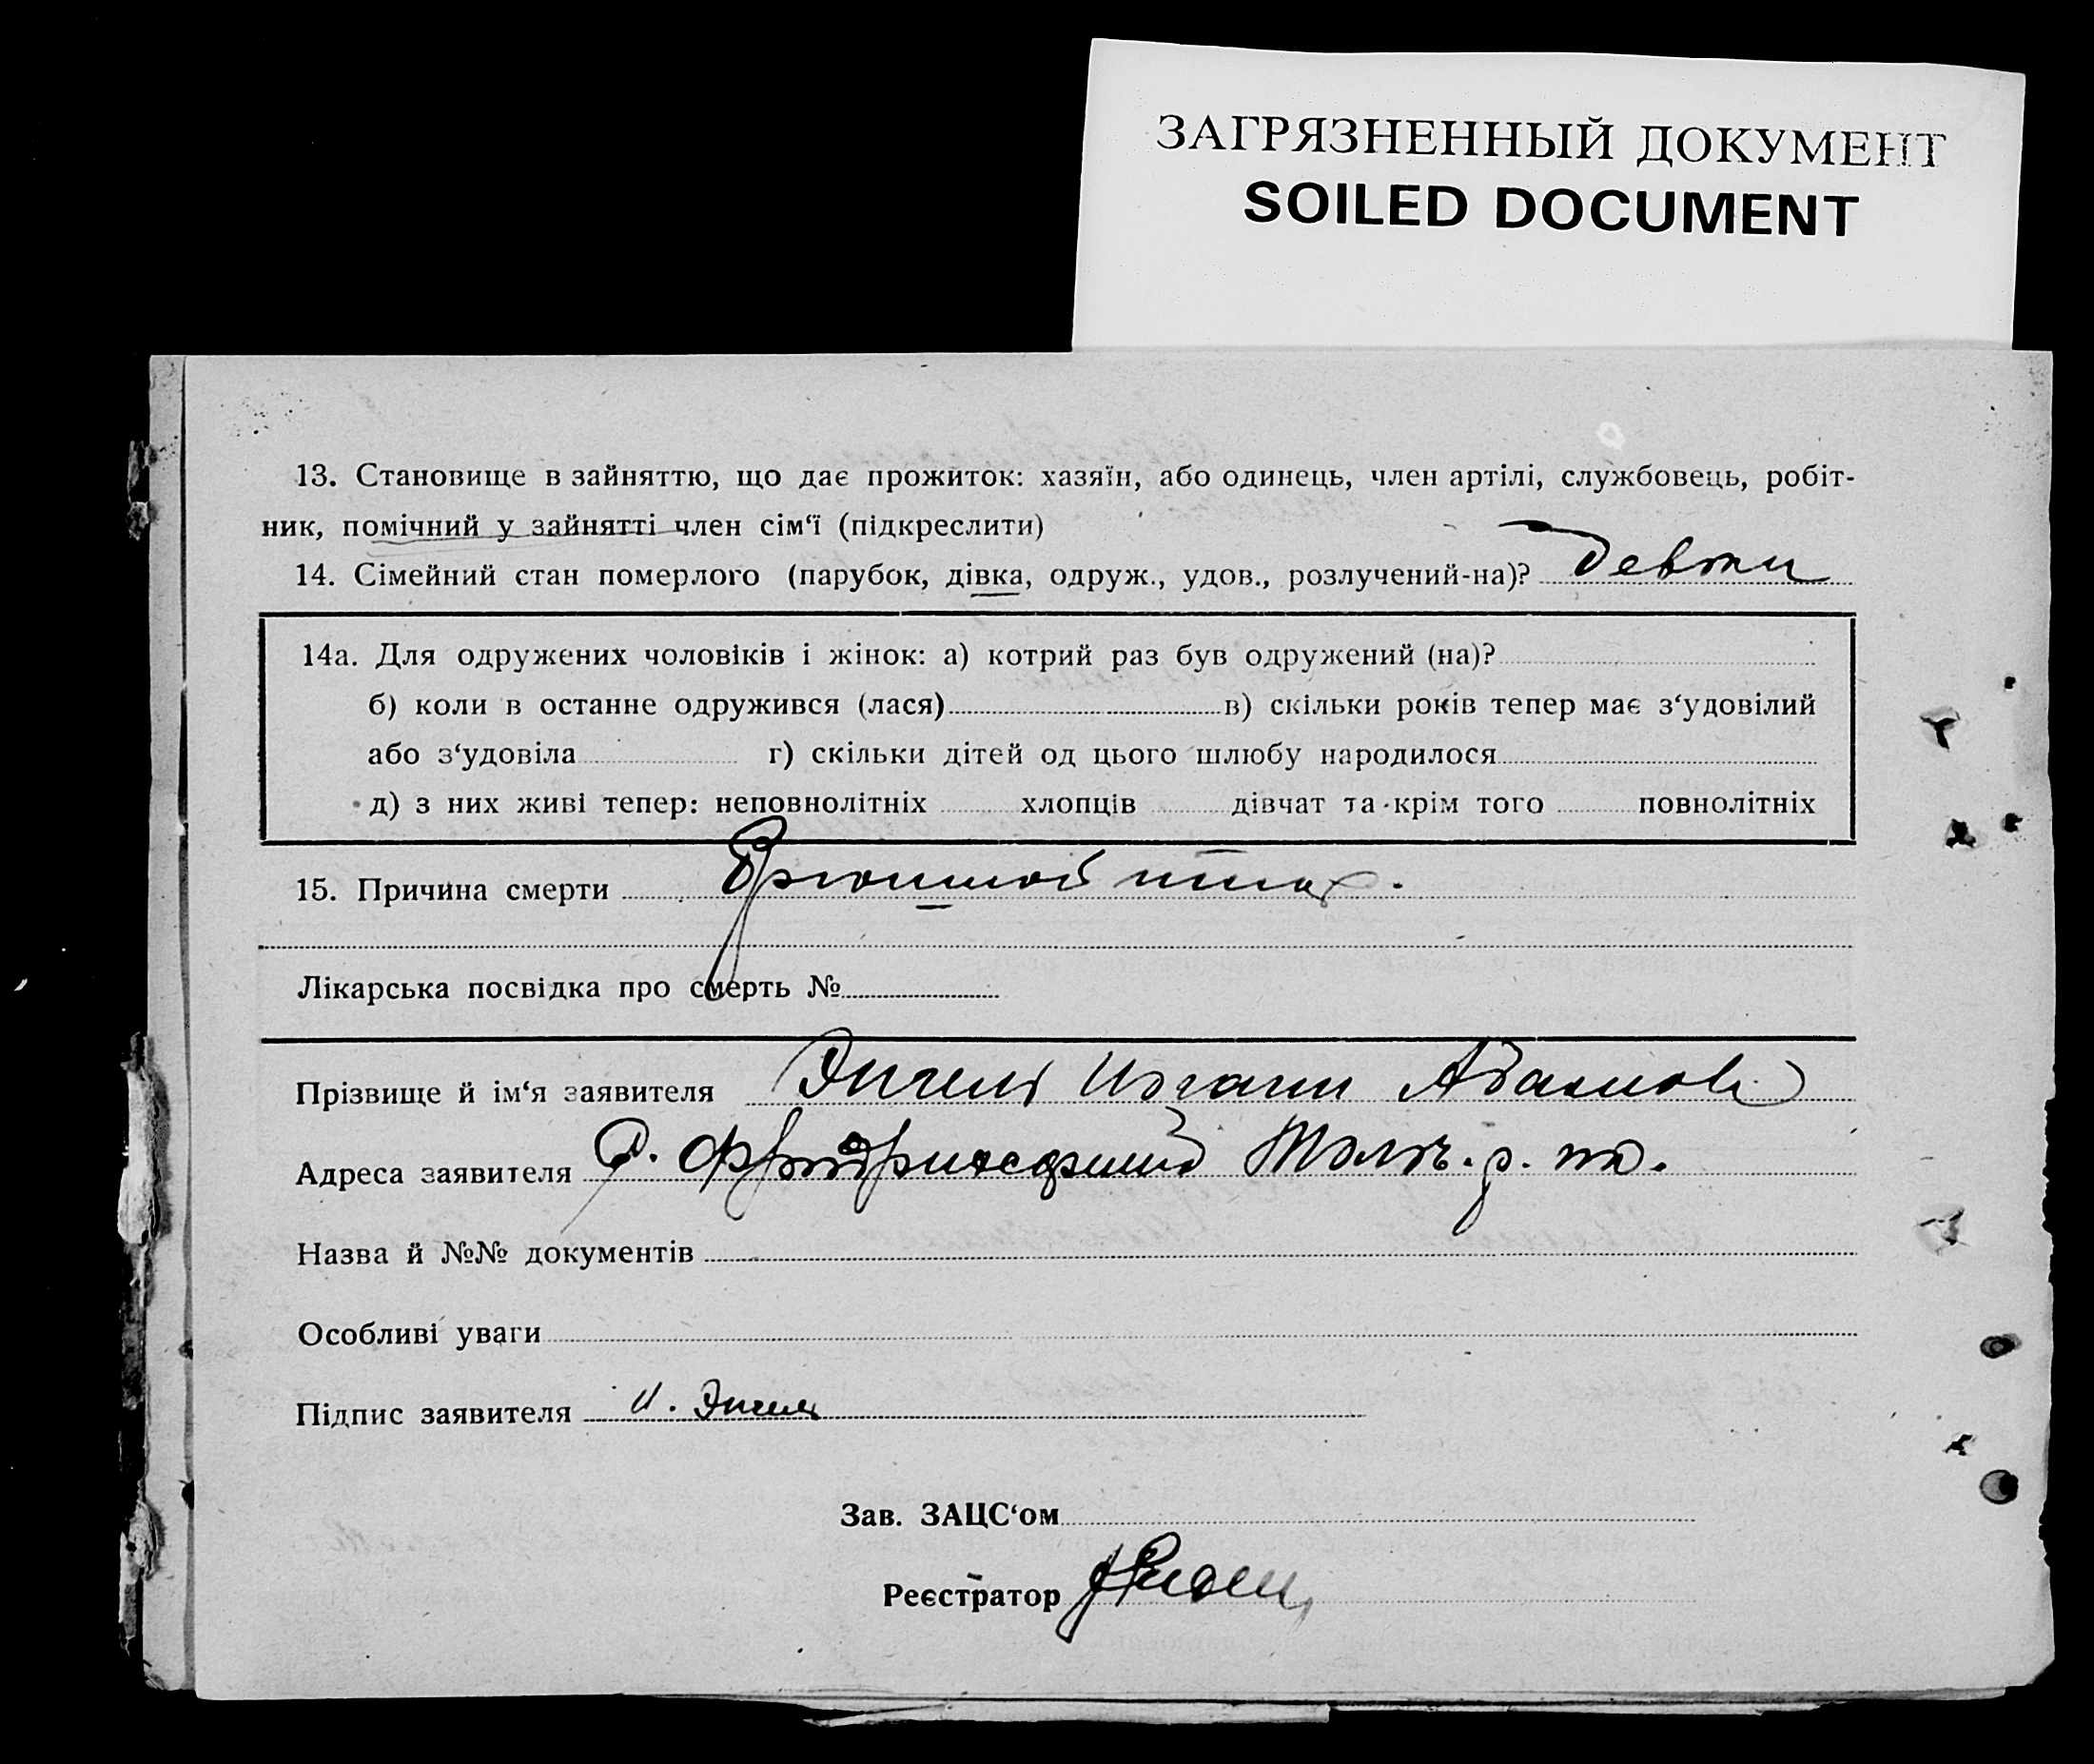 ЗАГРЯЗНЕННЫЙ ДОКУМЕНТ
SOILED DOCUMENT
13. Становище в зайняттю, що дає прожиток: хазяїн, або одинець, член артілі, службовець, робіт-
ник, помічний у зайнятті член сім‘ї (підкреслити)
14. Сімейний стан померлого (парубок, дівка, одруж., удов., розлучений-на)?
14а. Для одружених чоловіків і жінок: а) котрий раз був одружений (на)?
б) коли в останнє одружився (лася) в) скільки років тепер має з‘удовілий
або з‘удовіла г) скільки дітей од цього шлюбу народилося
д) з них живі тепер: неповнолітніх хлопців дівчат та крім того повнолітніх
15. Причина смерти Брюшной тиф.
Лікарська посвідка про смерть №
Прізвище й ім‘я заявителя Энгель Иоганн Адамов
Адреса заявителя Молоч. р. на.
Назва й №№ документів
Особливі уваги
Підпис заявителя И. Энгель
Зав. ЗАЦС‘ом
Реєстратор